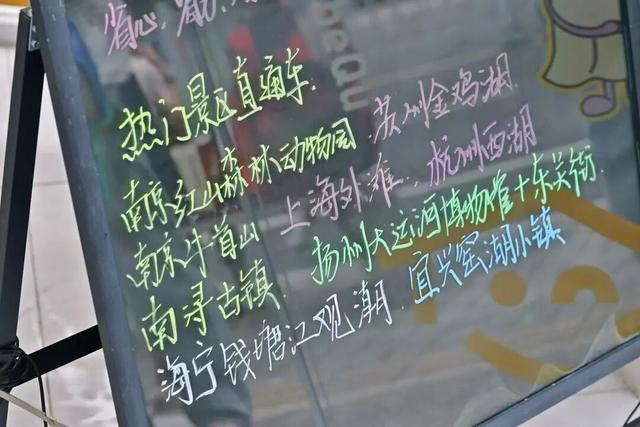 省心，省力
热门景区直通车
南京红山森林动物园 苏州金鸡湖
南京牛首山 上海外滩 杭州西湖
南寻古镇 扬州大运河博物馆+东关街
海宁钱塘江观潮 宜兴窑湖小镇